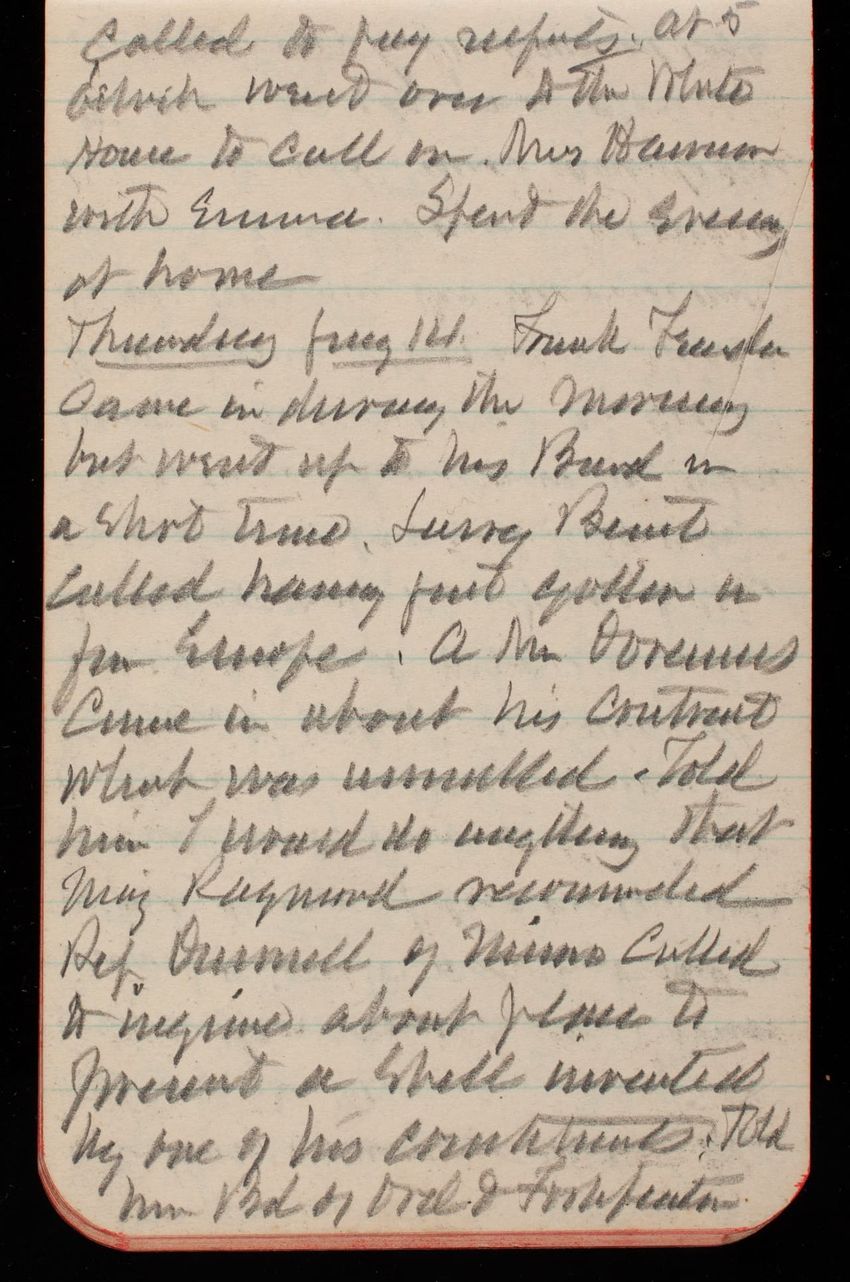 Called to pay respects. At 5
oclock went over to the White
House to call on Mrs Harrison
with Emma. Spend the evening
at home
Thursday
Came in during the morning
but went up to his Board in
a short time. Benét
called having just gotten in
from Europe. A Mr Doremus
Came in about his Contract
what was annulled. Told
him I would do anything that
Maj Raymond recommended
Rep. Dunnell of Minn Called
to inquire about place to
present a Shell invented
by one of his constituents. Told
him Bd of Ord & Fortification